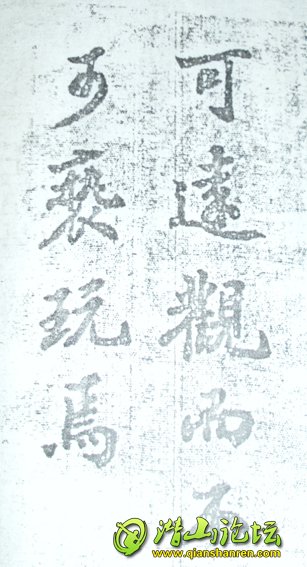 可遠觀而不
可褻玩焉
潜山论坛
www.qianshanren.com